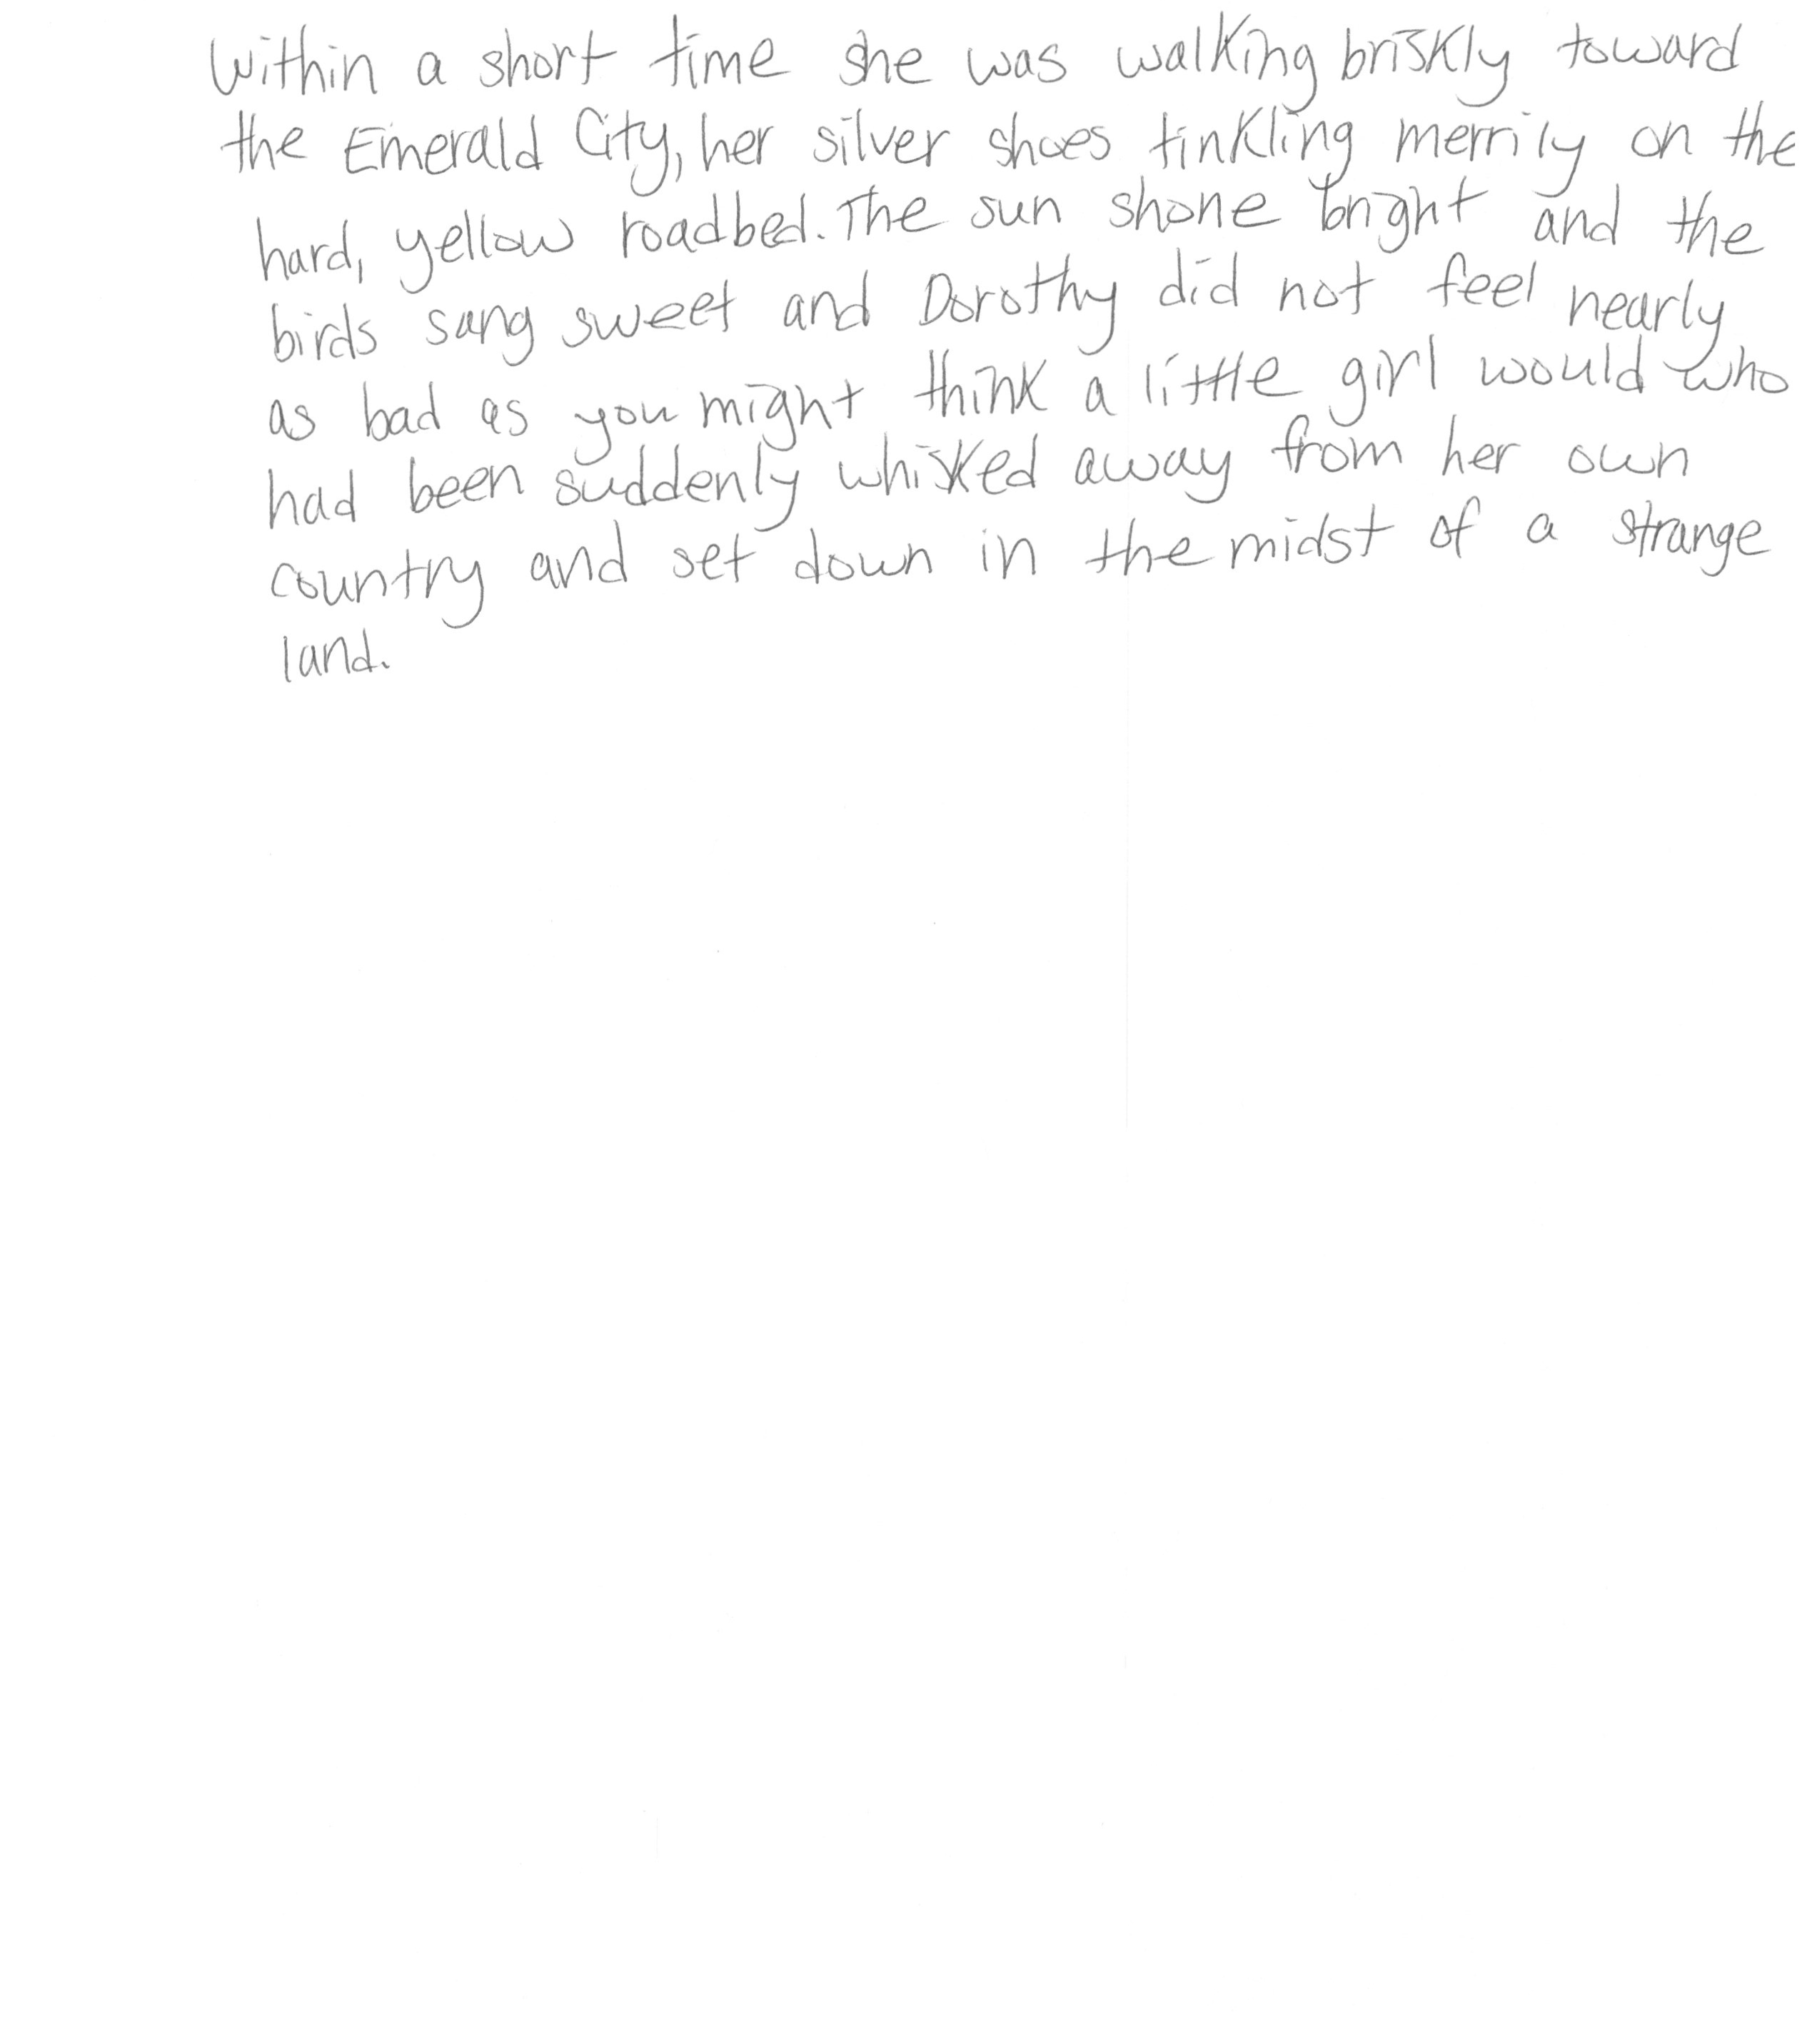 Within a short time she was walking briskly toward
the Emerald City, her silver shoes tinkling merrily on the
hard, yellow roadbed. The sun shone bright and the
birds sang sweet and Dorothy did not feel nearly
as bad as you might think a little girl would who
had been suddenly whisked away from her own
country and set down in the midst of a strange
land.